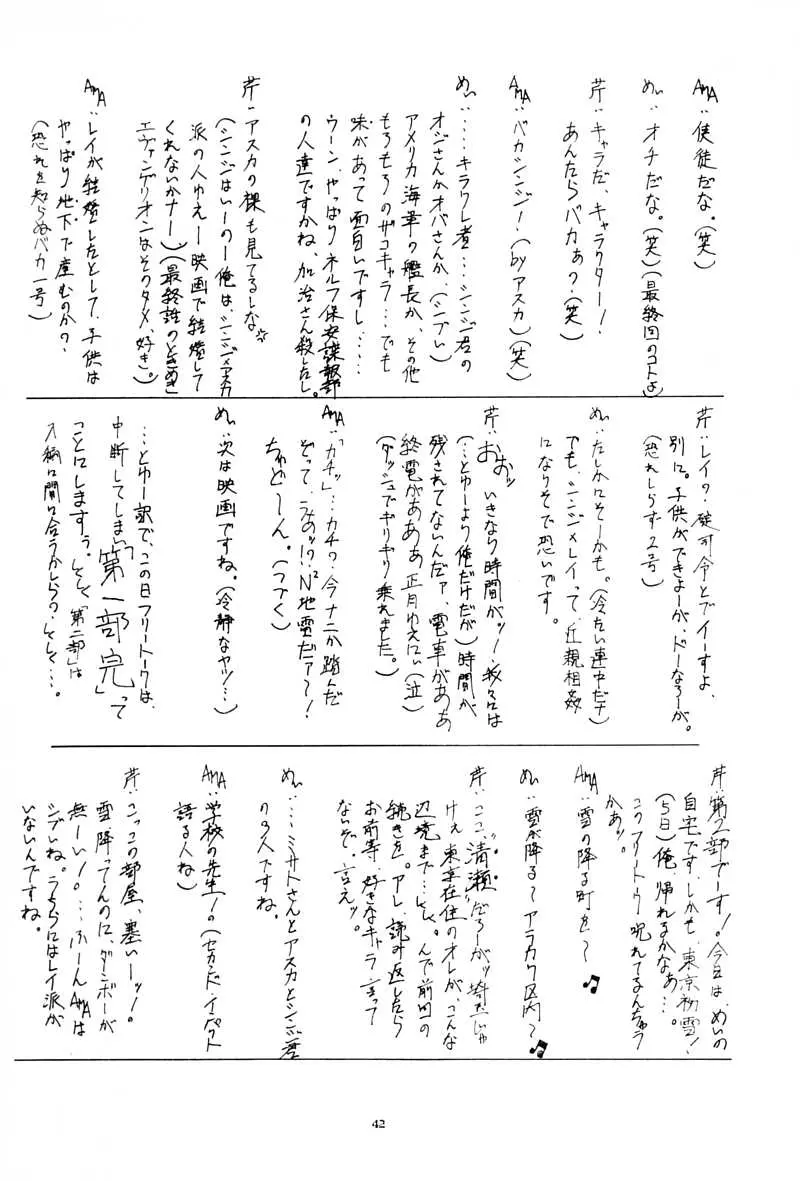 AMA:使徒だな。(笑)
めい:オチだな。(笑)(最終回のコトよ)
芹:キャラだ、キャラクター!
あんたらバカぁ?(笑)
AMA:バカシンジ!(byアスカ)(笑)
めい:…キラワレ者…シンジ君の
オジさんかオバさんか、(シブい)
アメリカ海軍の艦長か、その他
もろもろのザコキャラ…でも
味があって面白いですし……
ウーン、やっぱりネルフ保安諜報部
の人達ですかね、加治さん殺したし。
芹:アスカの裸も見てるしな。
(シンジはいーのー俺は、シンジ×アスカ
派の人ゆえー映画で結婚して
くれないかナー)(最終話のときめき
エヴァンゲリオンはそのタメ、好き)。
AMA:レイが結婚したとして、子供は
やっぱり地下で産むのか?
(恐れを知らぬバカ一号)
芹:レイ?、碇司令とでイーすよ、
別に。子供ができよーが、ドーなろーが。
(恐れしらず2号)
めい:たしかにそーかも。(冷たい連中だナ)
でも、シンジ×レイって、近親相姦
になりそで恐いです。
芹:おおッ、いきなり時間がッ!我々には
(…とゆーより俺だけだが)時間が
残されてないんだァ、電車がああ
終電があああ 正月ゆえにぃ(泣)
(ダッシュでギリギリ乗れました。)
AMA:「カチッ」…カチ?今ナニか踏んだ
ぞって、うおッ!?N²地雷だァ〜!
ちゅどーん。(つづく)
めい:次は映画ですね。(冷静なヤツ…)
…とゆー訳で、この日フリートークは、
中断してしまい「第一部完」って
ことにしますぅ。そして「第二部」は
入稿に間に合うかしら?、そして…。
芹:第2部でーす!。今日は、めいの
自宅です。しかも、東京初雪!
(5日)俺、帰れるかなぁ…。
このフリートーク呪れてるんちゃう
かぁッ。
AMA:雪の降る町を〜♪
めい:雪が降る〜アラカワ区内〜♪
芹:ここ、“清瀬”だろーがッ埼玉じゃ
けぇ東京在住のオレが、こんな
辺境まで…そして。んで前回の
続きを。アレ、読み返したら
お前等、好きなキャラ言って
ないぞ、言えッ。
めい:…ミサトさんとアスカとシンジ君
の3人ですね。
AMA:学校の先生!。(セカンド・インパクト
語る人ね)
芹:こっこの部屋、寒いーッ!
雪降ってんのに、ダンボーが
無ーい!。…ふーんAMAは
シブいね。うちらにはレイ派が
いないんですね。
42